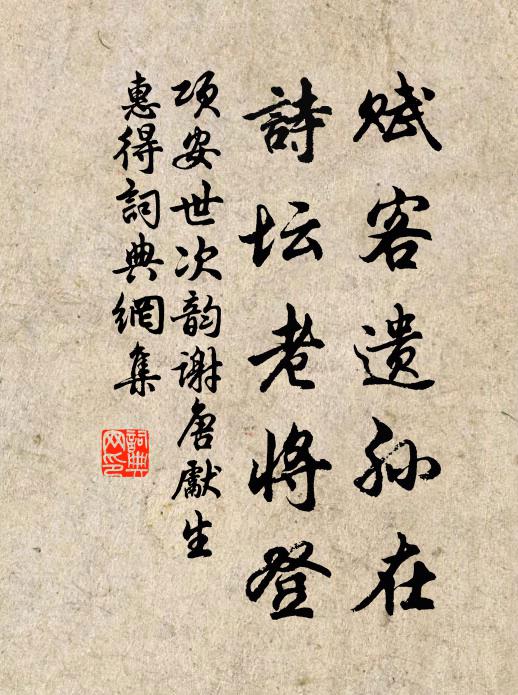 赋客遗孙在
詩坛老將登
项安世次韵谢唐獻生
惠得詞典網集
詞典网印